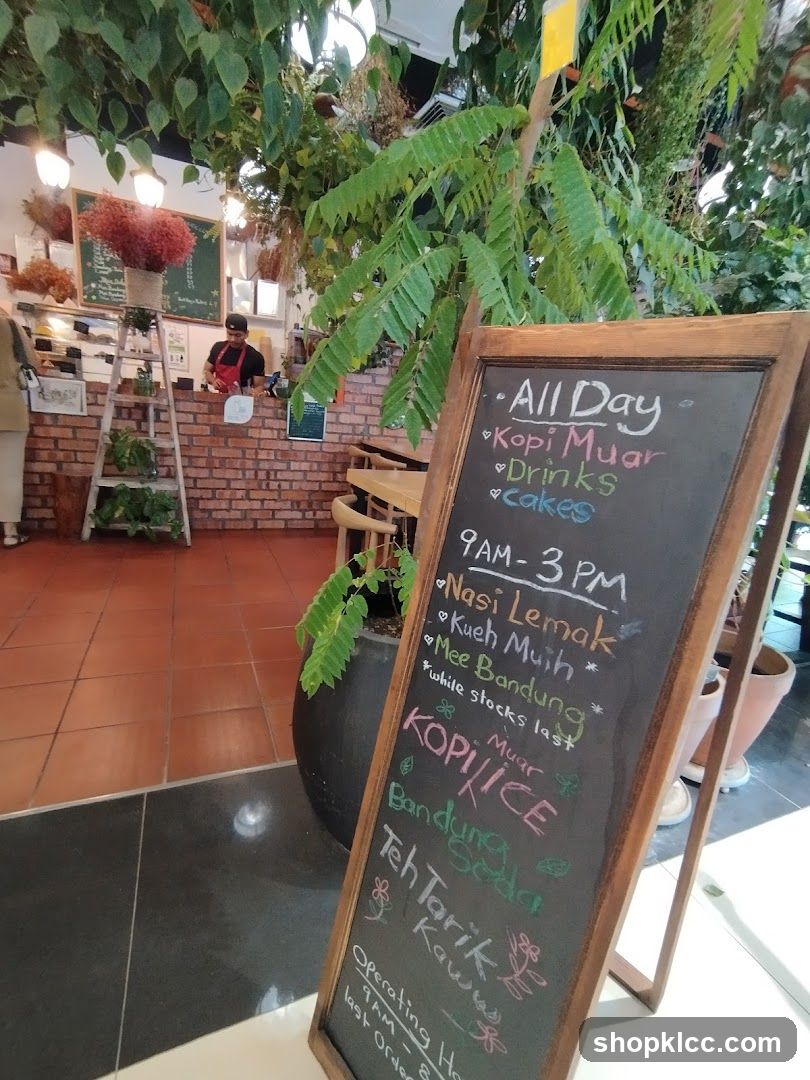 All Day
Kopi Muar
Drinks
cakes
9AM - 3PM
Nasi Lemak
Kueh Muih
Mee Bandung
*while stocks last*
Muar
KOPI / ICE
Bandung
Soda
Teh Tarik
Kaww
Operating Ho
9AM - 8
last Order
shopklcc.com